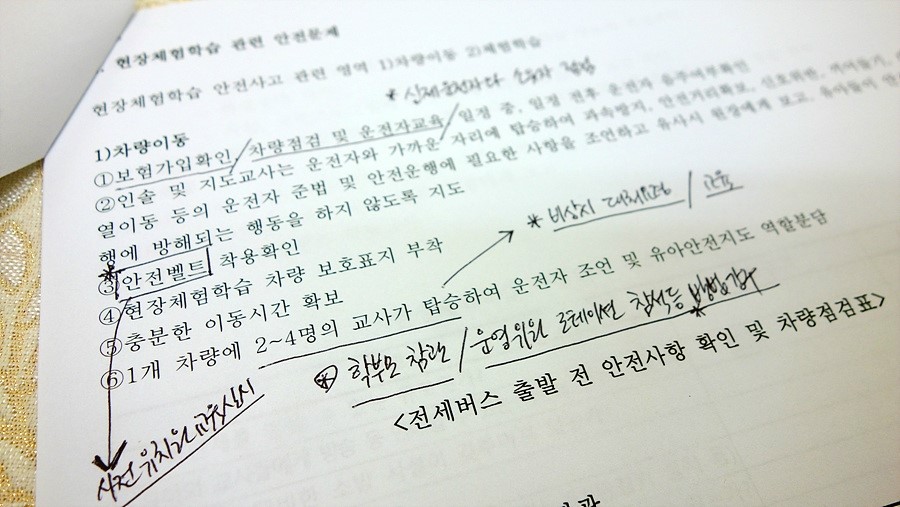 현장체험학습 관련 안전문제
현장체험학습 안전사고 관련 영역 1)차량이동 2)체험학습
1)차량이동
①보험가입확인, 차량점검 및 운전자교육, 일정 중, 일정 전후 운전자 음주여부확인
②인솔 및 지도교사는 운전자와 가까운 자리에 탑승하여 과속방지, 안전거리확보, 신호위반, 끼어들기,
열이동 등의 운전자 준법 및 안전운행에 필요한 사항을 조언하고 유사시 현장에게 보고, 유아들이
행에 방해되는 행동을 하지 않도록 지도
③안전벨트 착용확인
* 비상시 대처요령 /
④현장체험학습 차량 보호표지 부착
⑤충분한 이동시간 확보
⑥1개 차량에 2~4명의 교사가 탑승하여 운전자 조언 및 유아안전지도 역할분담
학부모 참관 / 운영위원 로테이션 참석등
<전세버스 출발 전 안전사항 확인 및 차량점검표>
사전 유치원 교육실시